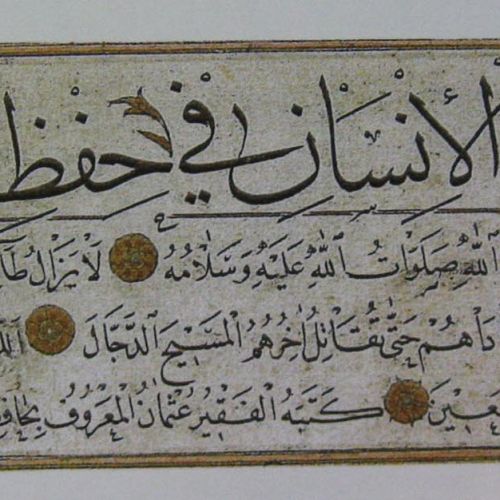 الْإِنْسَانِ فِي حِفْظِ
اللّٰهِ صَلَوَاتُ اللّٰهِ عَلَيْهِ وَسَلَامُهُ لَا يَزَالُ
حَتَّى يُقَاتِلَ آخِرُهُمُ الْمَسِيحَ الدَّجَّالَ
كَتَبَهُ الْفَقِيرُ عُثْمَانُ الْمَعْرُوفُ